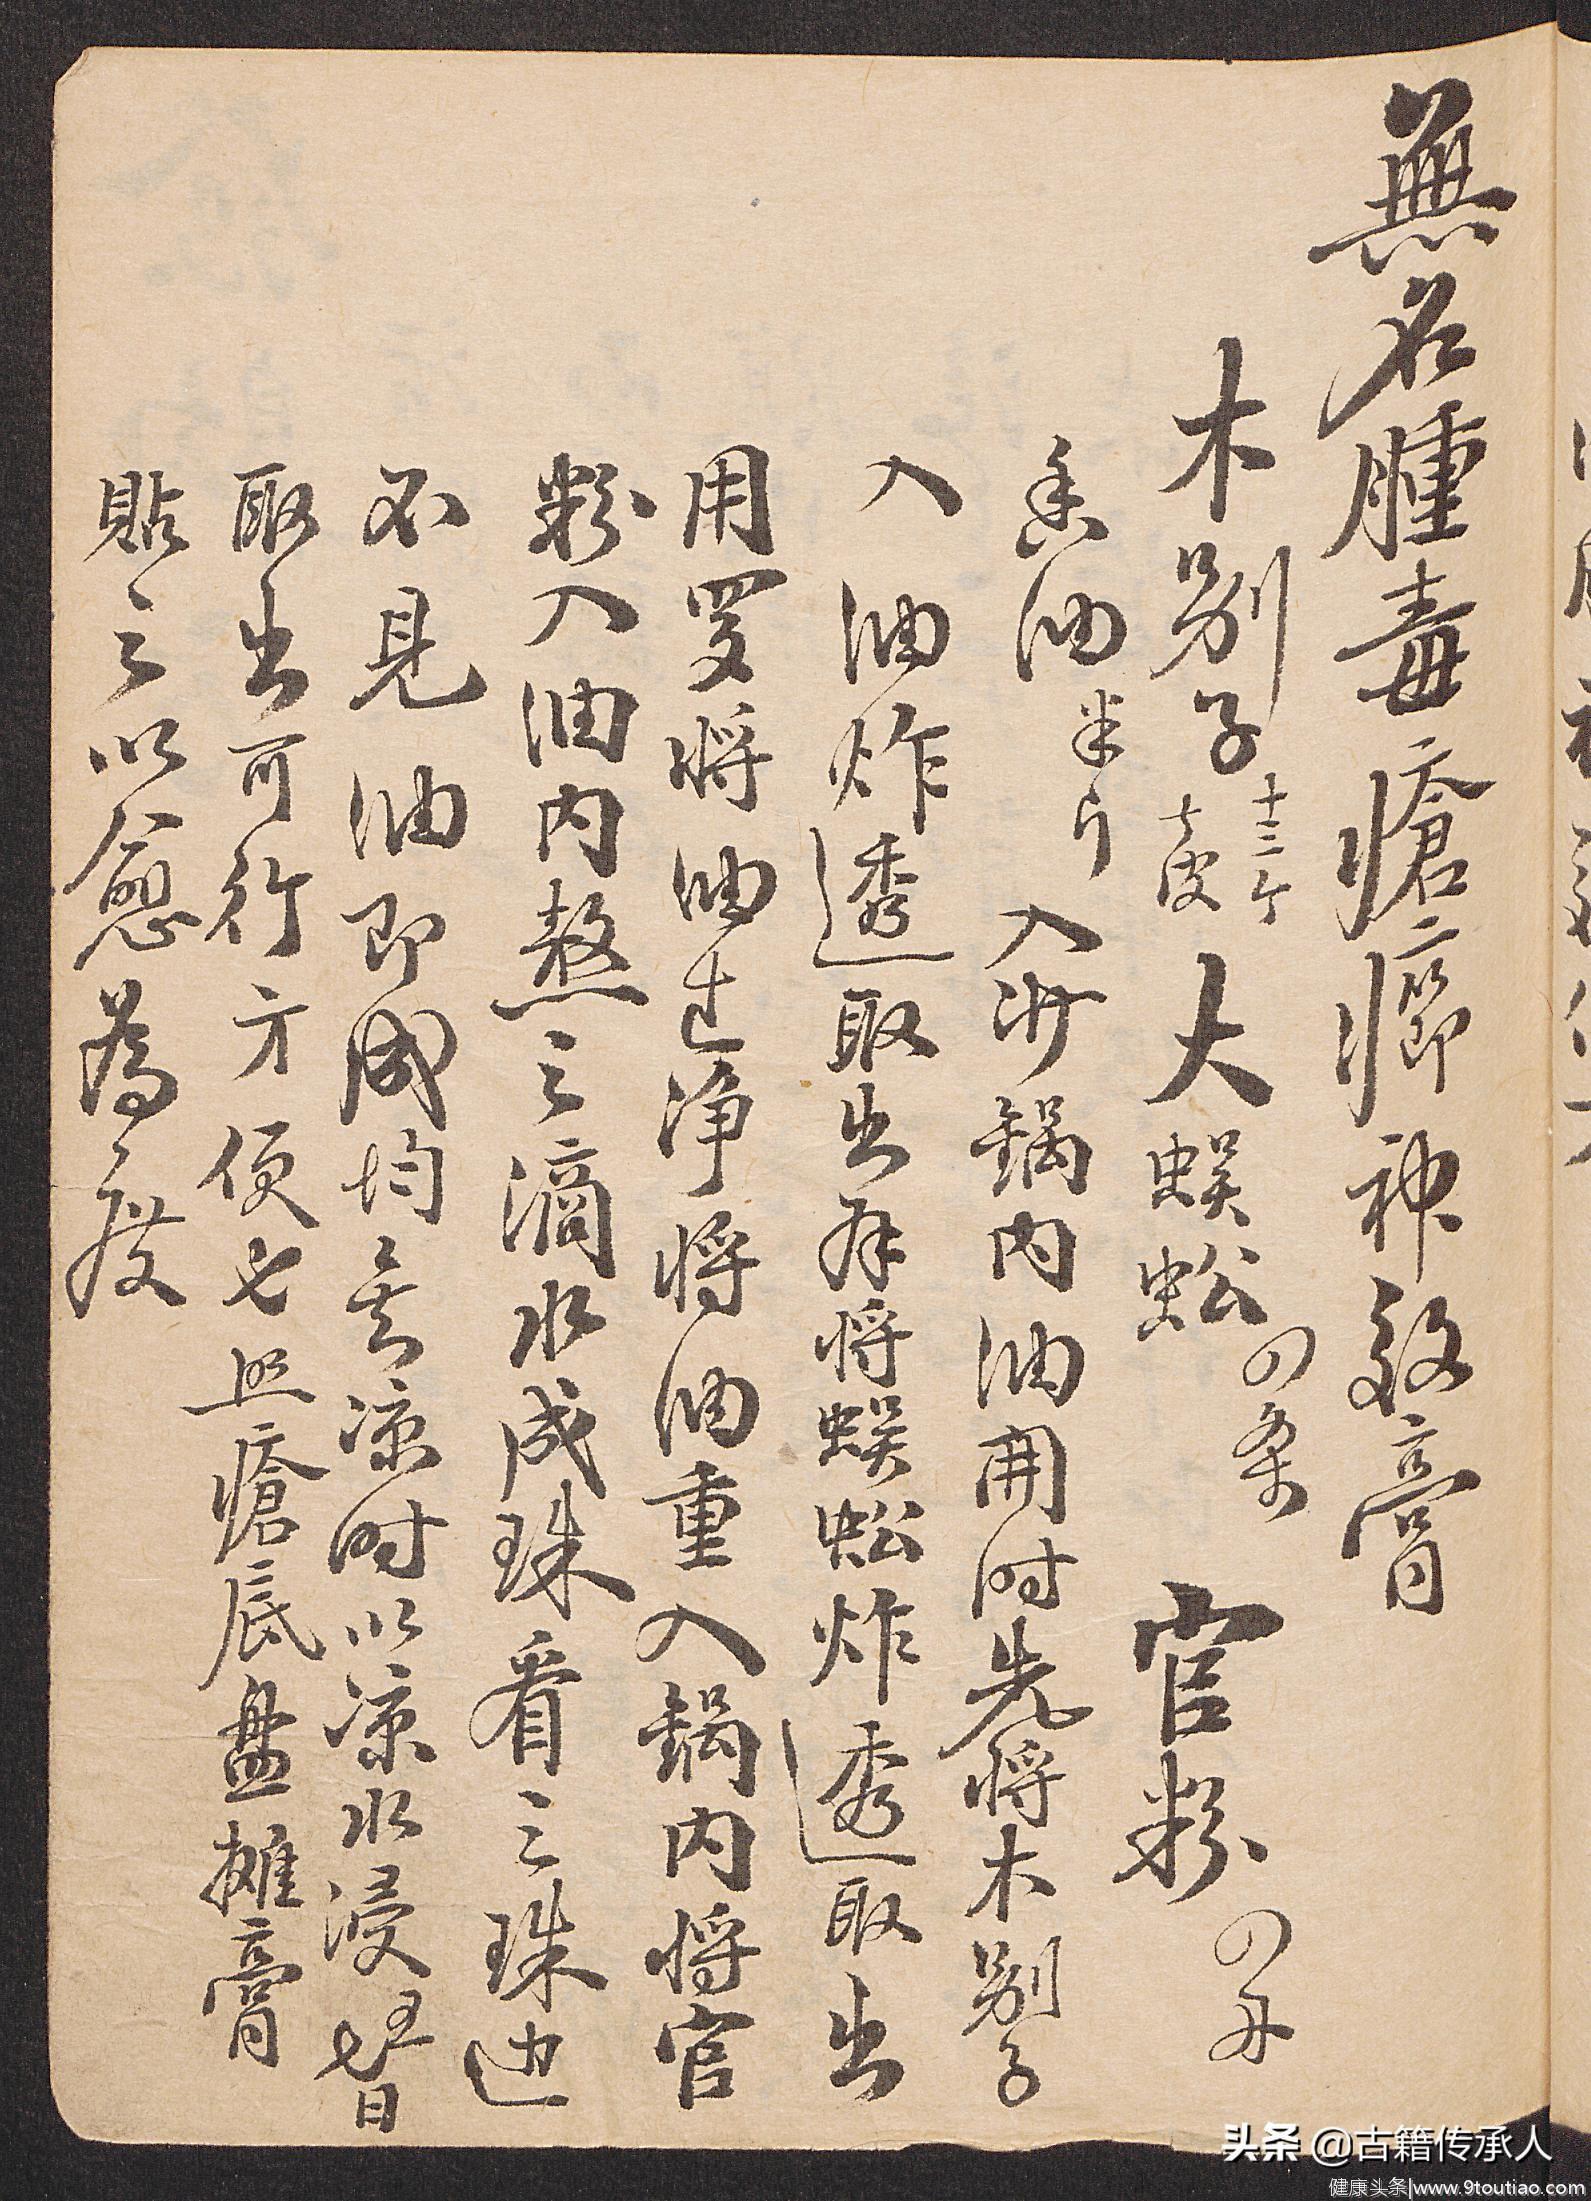 無名腫毒瘡癤神效膏
木别子十三个去皮 大蜈蚣四条 官粉四两
香油半斤 入沙鍋内油開时先將木别子
入油炸透取出再将蜈蚣炸透取出
用罗将油过净将油重入鍋内将官
粉入油内熬之滴水成珠看之珠边
不见油即成均 凉时以凉水浸五七日
取出可行方便也照瘡底盘摊膏
貼之以愈為度
头条 @古籍传承人
健康头条|www.9toutiao.com